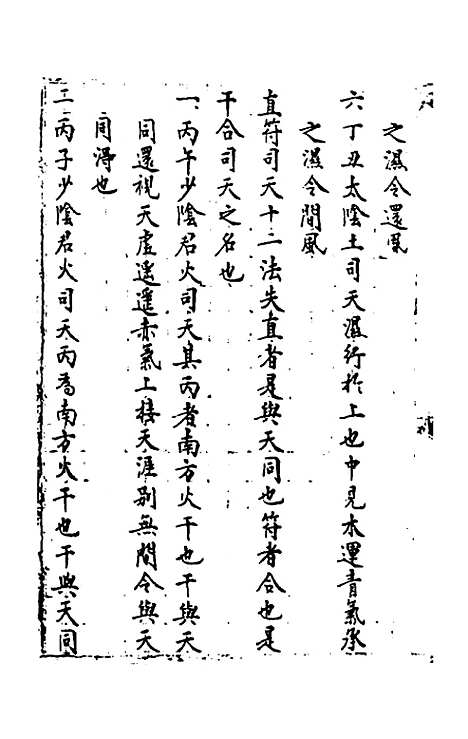 之濕令還風
六丁丑太陰土司天濕行於上也中見木運青氣承
之濕令間風
直符司天十二法失直者是與天同也符者合也是
干合司天之名也
一丙午少陰君火司天其丙者南方火干也干與天
同還視天虛遥遥赤氣上接天涯别無間令與天
同得也
二丙子少陰君火司天丙爲南方火干也干與天同